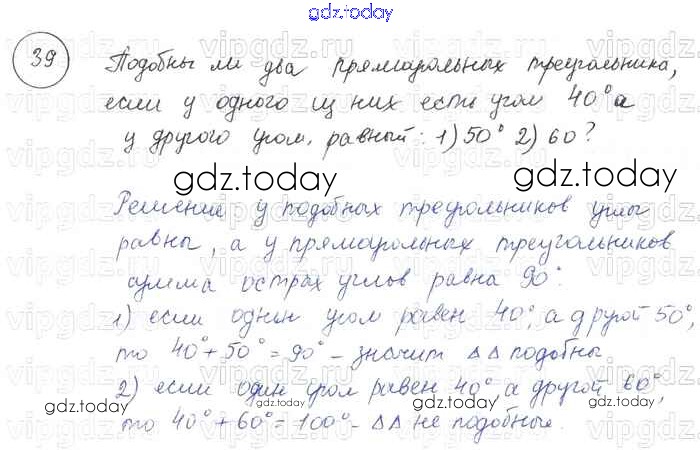 gdz.today
39 Подобны ли два прямоугольных треугольника,
если у одного из них есть угол 40° а
у другого угол, равный: 1) 50° 2) 60?
gdz.today gdz.today
Решение у подобных треугольников углы
равны, а у прямоугольных треугольников
сумма острах углов равна 90°.
1) если один угол равен 40°, а другой 50°,
то 40°+50°=90° – значит ΔΔ подобны
2) если один угол равен 40° а другой 60°,
gdz.today gdz.today gdz.today
то 40°+60°=100° – ΔΔ не подобные.